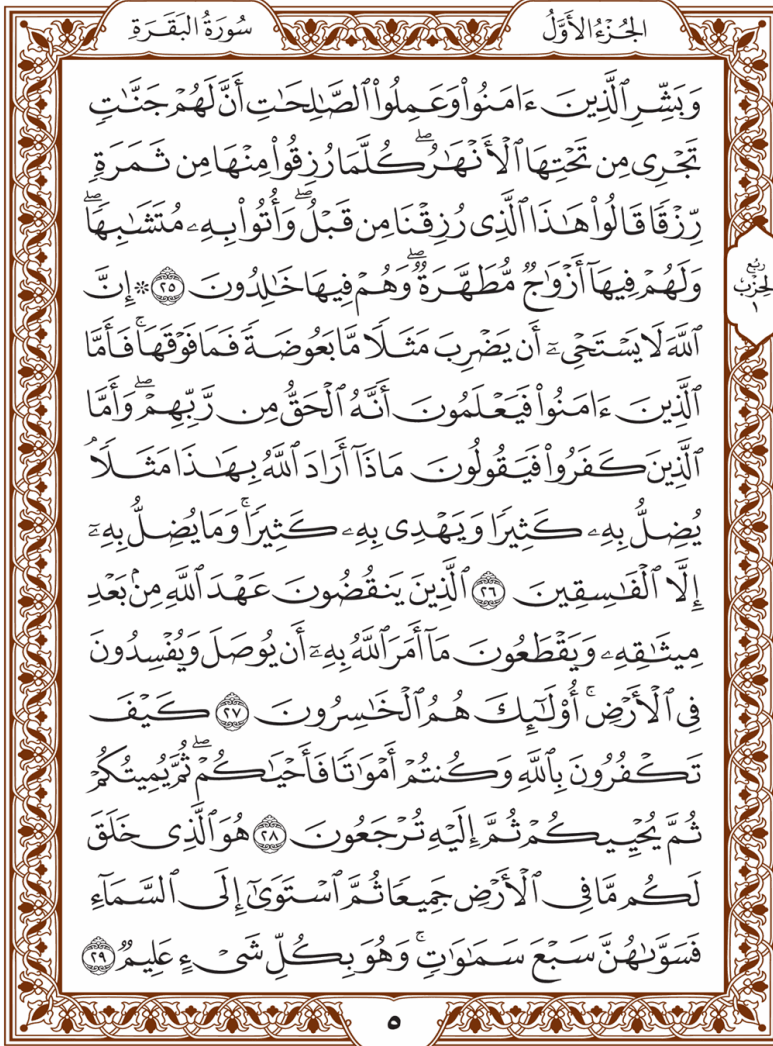 الجُزْءُ الأَوَّلُ
سُورَةُ البَقَرَةِ
وَبَشِّرِ ٱلَّذِينَ ءَامَنُوا۟ وَعَمِلُوا۟ ٱلصَّـٰلِحَـٰتِ أَنَّ لَهُمْ جَنَّـٰتٍ
تَجْرِى مِن تَحْتِهَا ٱلْأَنْهَـٰرُ ۖ كُلَّمَا رُزِقُوا۟ مِنْهَا مِن ثَمَرَةٍ
رِّزْقًا قَالُوا۟ هَـٰذَا ٱلَّذِى رُزِقْنَا مِن قَبْلُ ۖ وَأُتُوا۟ بِهِۦ مُتَشَـٰبِهًا ۖ
وَلَهُمْ فِيهَآ أَزْوَٰجٌ مُّطَهَّرَةٌ ۖ وَهُمْ فِيهَا خَـٰلِدُونَ ٢٥ ۞ إِنَّ
ٱللَّهَ لَا يَسْتَحْىِۦٓ أَن يَضْرِبَ مَثَلًا مَّا بَعُوضَةً فَمَا فَوْقَهَا ۚ فَأَمَّا
ٱلَّذِينَ ءَامَنُوا۟ فَيَعْلَمُونَ أَنَّهُ ٱلْحَقُّ مِن رَّبِّهِمْ ۖ وَأَمَّا
ٱلَّذِينَ كَفَرُوا۟ فَيَقُولُونَ مَاذَآ أَرَادَ ٱللَّهُ بِهَـٰذَا مَثَلًا ۘ
يُضِلُّ بِهِۦ كَثِيرًا وَيَهْدِى بِهِۦ كَثِيرًا ۚ وَمَا يُضِلُّ بِهِۦٓ
إِلَّا ٱلْفَـٰسِقِينَ ٢٦ ٱلَّذِينَ يَنقُضُونَ عَهْدَ ٱللَّهِ مِنۢ بَعْدِ
مِيثَـٰقِهِۦ وَيَقْطَعُونَ مَآ أَمَرَ ٱللَّهُ بِهِۦٓ أَن يُوصَلَ وَيُفْسِدُونَ
فِى ٱلْأَرْضِ ۚ أُو۟لَـٰٓئِكَ هُمُ ٱلْخَـٰسِرُونَ ٢٧ كَيْفَ
تَكْفُرُونَ بِٱللَّهِ وَكُنتُمْ أَمْوَٰتًا فَأَحْيَـٰكُمْ ۖ ثُمَّ يُمِيتُكُمْ
ثُمَّ يُحْيِيكُمْ ثُمَّ إِلَيْهِ تُرْجَعُونَ ٢٨ هُوَ ٱلَّذِى خَلَقَ
لَكُم مَّا فِى ٱلْأَرْضِ جَمِيعًا ثُمَّ ٱسْتَوَىٰٓ إِلَى ٱلسَّمَآءِ
فَسَوَّىٰهُنَّ سَبْعَ سَمَـٰوَٰتٍ ۚ وَهُوَ بِكُلِّ شَىْءٍ عَلِيمٌ ٢٩
رُبْع
الحِزْب
١
٥